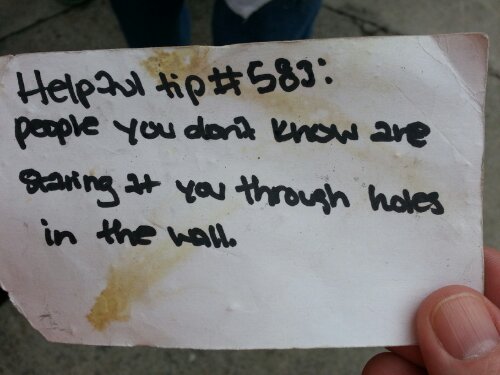 Helpful tip #589:
people you don't know are
staring at you through holes
in the wall.